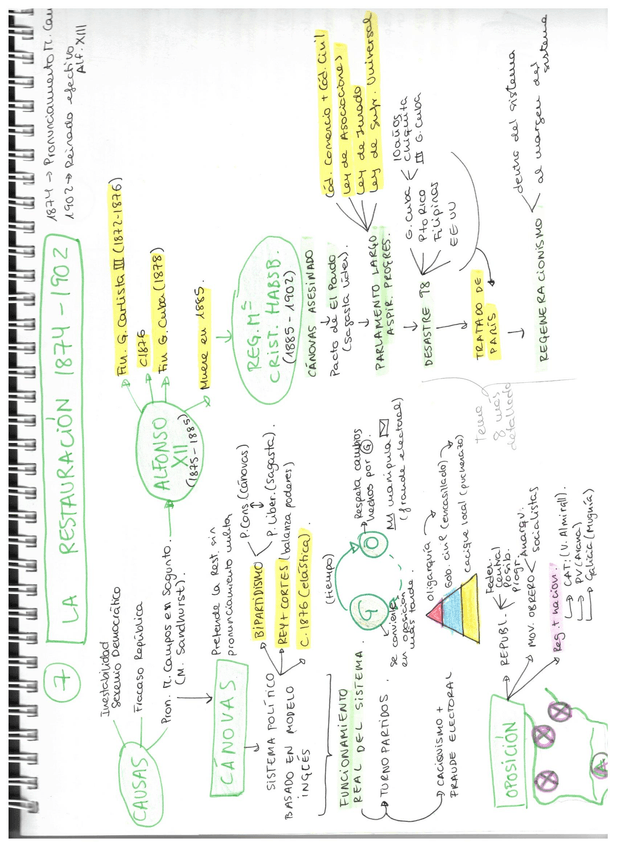 7
LA RESTAURACIÓN 1874-1902
1874 → Pronunciamiento M. Cam
1902 → Reinado efectivo
Alf. XIII
CAUSAS
Inestabilidad
Sexenio Democrático
Fracaso República
Pron. M. Campos en Sagunto.
(M. Sandhurst)
ALFONSO
XII
(1875-1885)
Fin. G. Carlista III (1872-1876)
C1876
Fin G. Cuba (1878)
Muere en 1885.
CÁNOVAS
Pretende la Rest. sin
pronunciamiento militar
SISTEMA POLÍTICO
BASADO EN MODELO
INGLÉS
BIPARTIDISMO
P. Cons (Cánovas)
P. Liber. (Sagasta)
REY + CORTES (balanza poderes)
C. 1876 (elástica)
REG. Mª
CRIST. HABSB.
(1885-1902)
CÁNOVAS ASESINADO
Pacto de El Pardo
(Sagasta líder)
PARLAMENTO LARGO
ASPIR. PROGRES.
Cód. Comercio + Cód. Civil
Ley de Asociaciones
Ley de Jurado
Ley de Sufr. Universal
DESASTRE 98
G. Cuba
10 años
Chiquita
III G. Cuba
Pto Rico
Filipinas
EEUU
TRATADO DE
PARIS
REGENERACIONISMO
dentro del sistema
al margen del
sistema
Tema
8 más
detallado
FUNCIONAMIENTO
REAL DEL SISTEMA.
TURNO PARTIDOS.
(tiempo)
G
O
Se convierte
en oposición
más tarde.
Respeta cambios
hechos por G.
manipula
(fraude electoral)
CACIQUISMO +
FRAUDE ELECTORAL
Oligarquía
Gob. civil (encasillado)
Cacique local (pucherazo)
OPOSICIÓN
REPUBL.
Feder.
Posib.
Progr.
MOV. OBRERO
Anarqu.
socialistas
Reg + nacion.
CAT: (V. Almirall).
PV (Arana)
Galicia (Murguía)